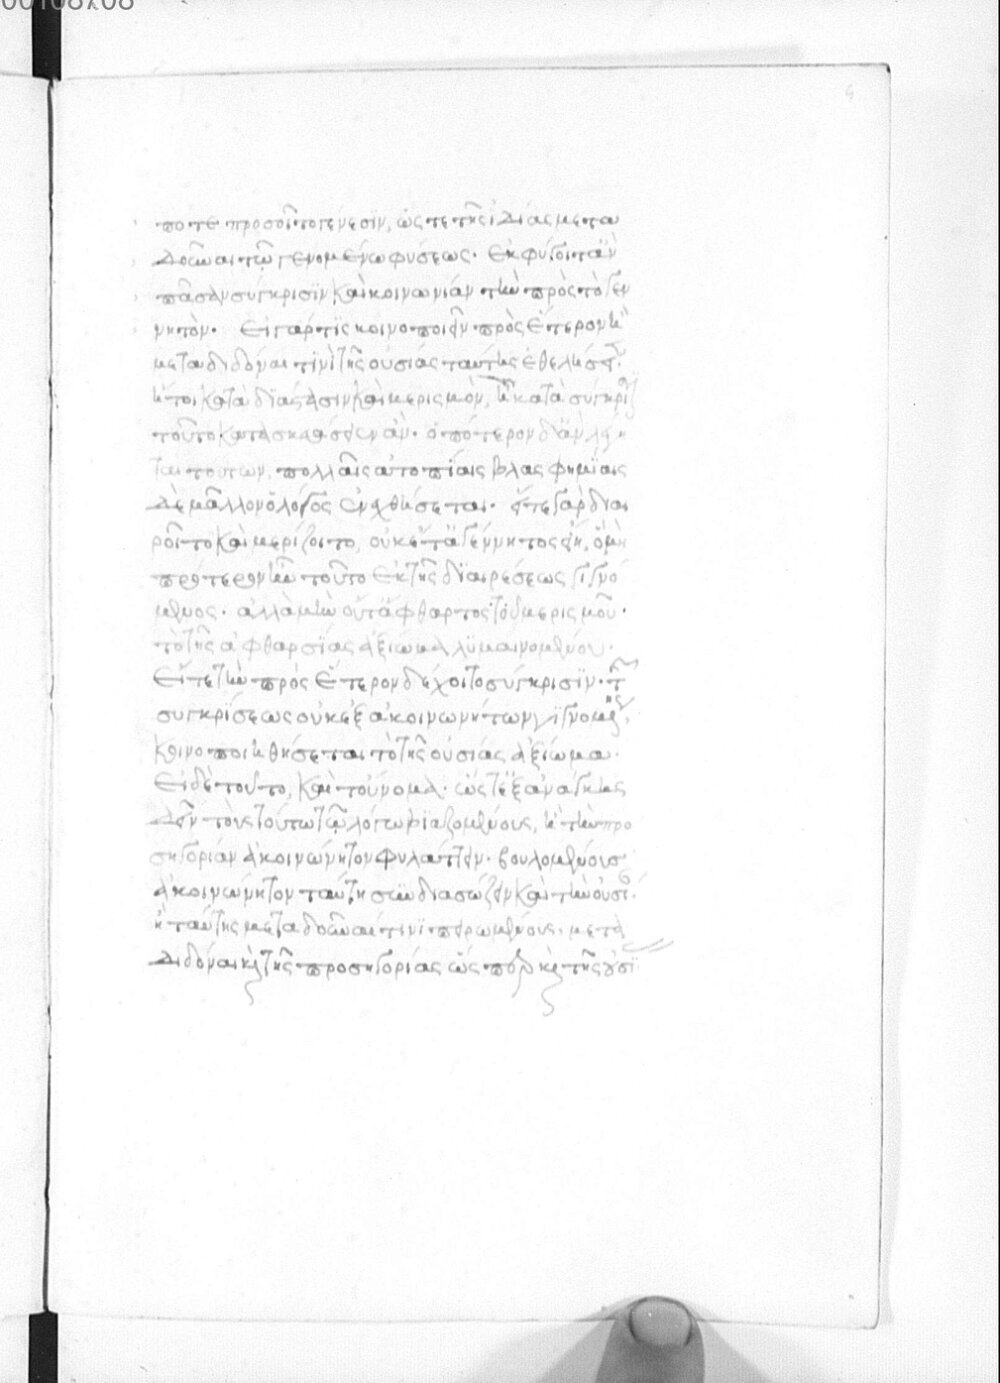 ποτε προσοῖτο γένεσιν, ὥς τε τῆς ἰδίας μετα
δοῦναι τῷ γενομένω φύσεως· ἐκφύγοι τ' ἂν
πᾶσαν σύγκρισιν καὶ κοινωνίαν τὴν πρὸς τὸ γεν
νητόν· Εἰ γάρ τις κοινοποιεῖν πρὸς ἕτερον ἢ
μεταδιδόναι τινὶ τῆς οὐσίας ταύτης ἐθελήσει,
ἤτοι κατὰ διάστασιν καὶ μερισμόν, ἢ κατὰ σύγκρισιν
τοῦτο κατασκευάσειεν ἄν· ὁπότερον δ' ἂν λη
ταὶ τούτων, πολλαῖς ἀτοπίαις βλασφημίαις
δὲ μᾶλλον ὁ λόγος ἐνεχθήσεται· εἴτε γὰρ διαι
ροῖτο καὶ μερίζοιτο, οὐκέτ' ἀγέννητος εἴη, ὃ μὴ
πρότερον ἦν τοῦτο ἐκ τῆς διαιρέσεως γιγνό
μενος· ἀλλὰ μὴν οὔτ' ἄφθαρτος τοῦ μερισμοῦ·
τὸ τῆς ἀφθαρσίας ἀξίωμα λυμαινομένου·
Εἴτε τὴν πρὸς ἕτερον δέχοιτο σύγκρισιν· τῆς
συγκρίσεως οὐκ ἐξ ἀκοινωνήτων γιγνομένης,
κοινοποιηθήσεται τὸ τῆς οὐσίας ἀξίωμα·
Εἰ δὲ τοῦτο, καὶ τοὔνομα· ὥστ' ἐξ ἀνάγκης
δεῖν τοὺς τούτω τῷ λόγω βιαζομένους, ἢ τὴν προ
σηγορίαν ἀκοινώνητον φυλάττειν· βουλομένοις
ἀκοινώνητον ταύτη συνδιασώζειν καὶ τὴν οὐσίαν·
ἢ ταύτης μεταδοῦναί τινι πειρωμένους· μετα
διδόναι κὶ τῆς προσηγορίας ὥσπερ κὶ τῆς οὐσί